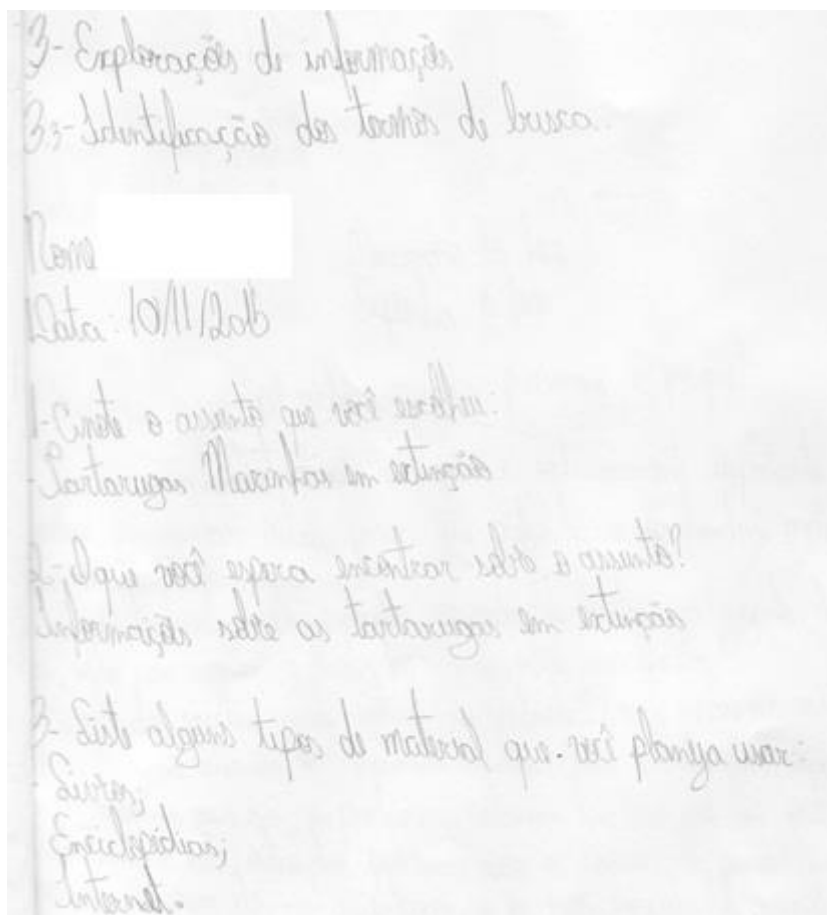 3- Explorações de informações
3.3- Identificação dos termos de busca.
Nome
Data: 10/11/2006
1- Conte o assunto que você escolheu:
- Tartarugas Marinhas em extinção
2- O que você espera encontrar sobre o assunto?
Informações sobre as tartarugas em extinção
3- Liste alguns tipos de material que você planeja usar:
- Livros;
Enciclopédias;
Internet.